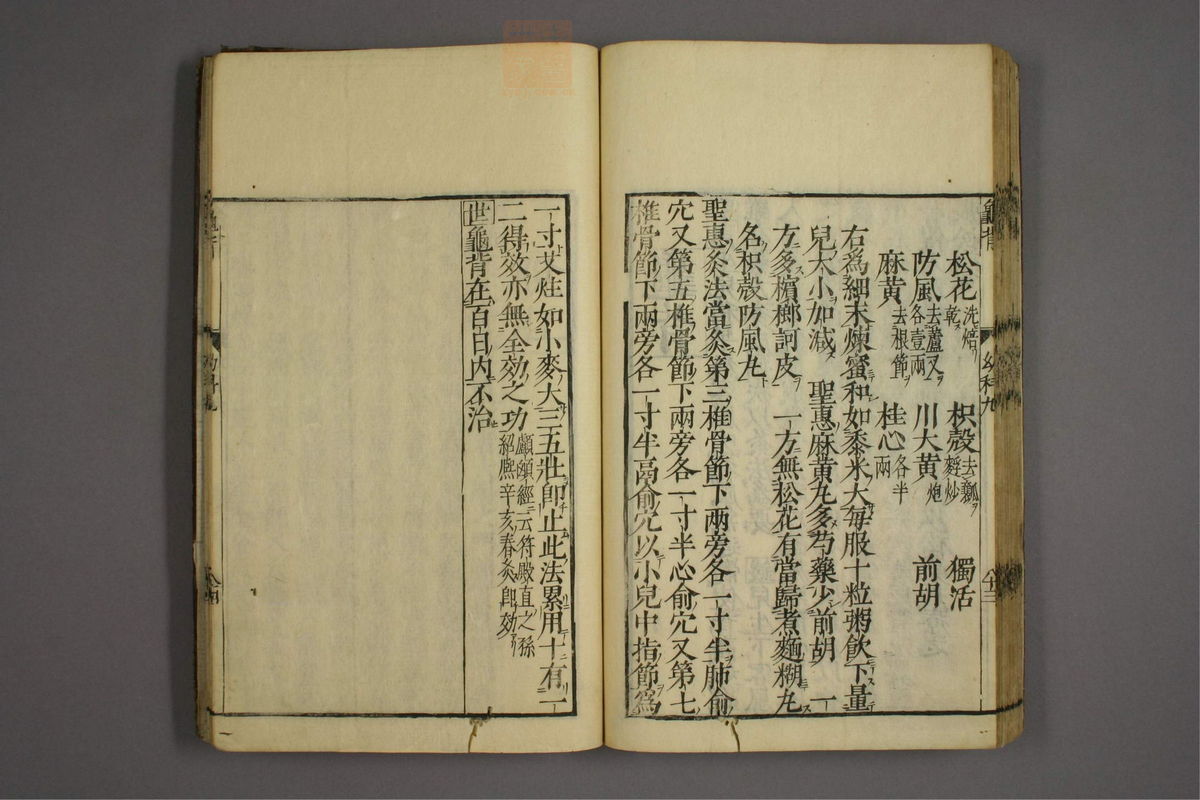 龜背
幼科九
松花洗焙乾　枳殼去瓤麩炒　獨活
防風去蘆叉各壹兩　川大黃炮　前胡
麻黃去根節　桂心各半兩
右爲細末煉蜜和如黍米大每服十粒粥飲下量
兒大小加減　聖惠麻黃丸多芍藥少前胡　一
方多檳榔訶皮　一方無松花有當歸煮麵糊丸
名枳殼防風丸
聖惠灸法當灸第三椎骨節下兩旁各一寸半肺俞
穴又第五椎骨節下兩旁各一寸半心俞穴又第七
椎骨節下兩旁各一寸半鬲俞穴以小兒中指節爲
一寸艾炷如小麥大三五壯即止此法累用十有一
二得效亦無全効之功顱顖經云符殿直之孫紹熙辛亥春灸即効
世龜背在百日內不治
龜背